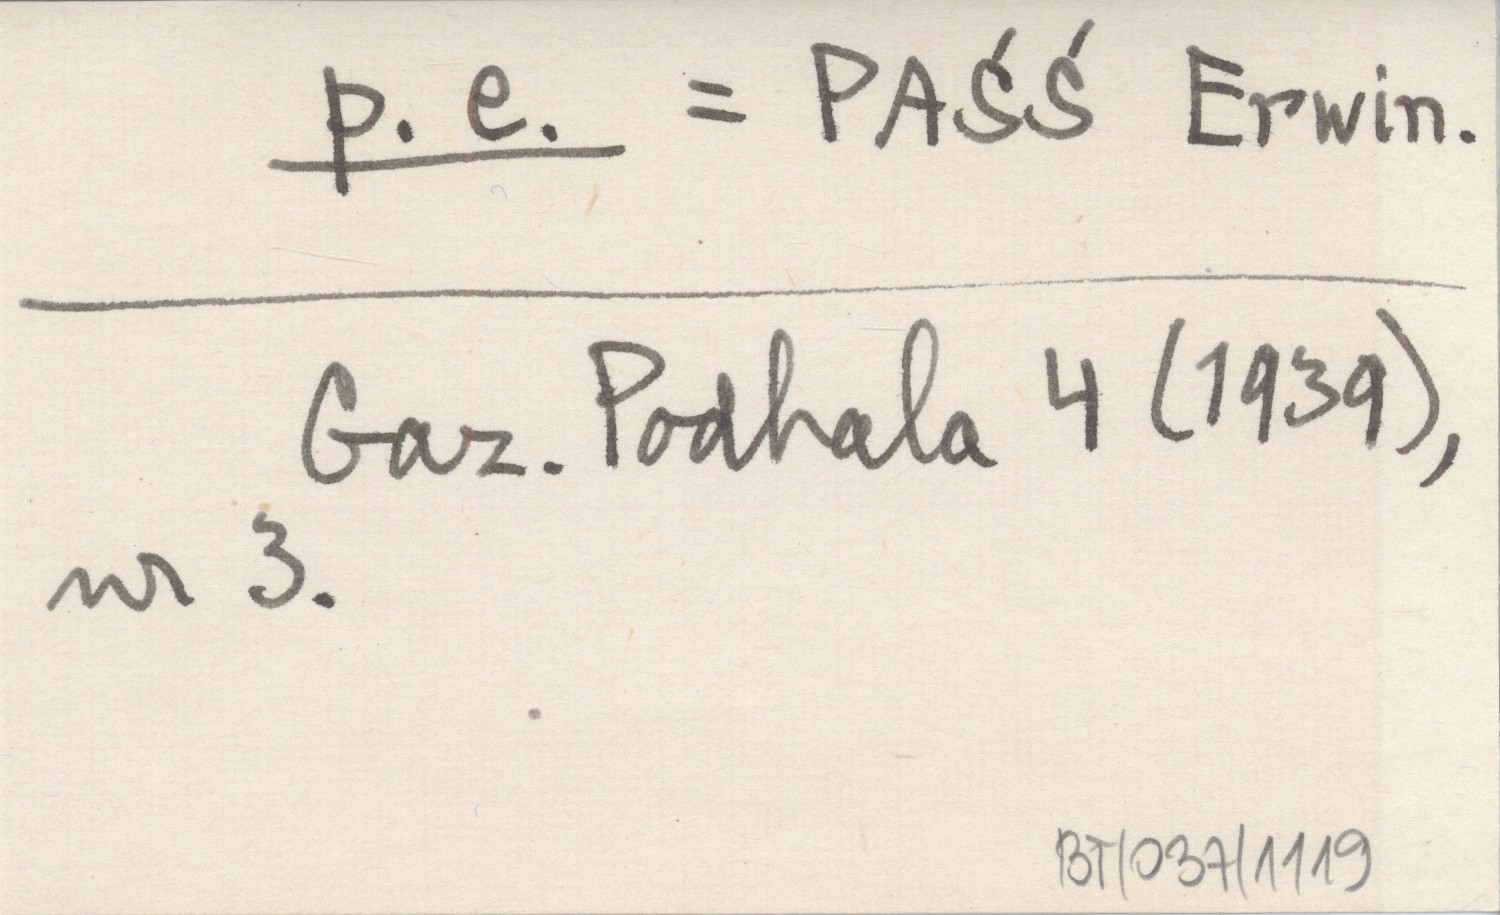 p. e. = PAŚŚ Erwin.
Gaz. Podhala 4 (1939),
nr 3.
BT/037/1119